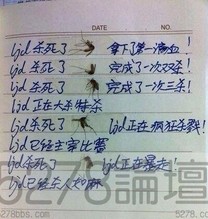 DATE NO.
ljd 杀死了 拿下了第一滴血！
ljd 杀死了 完成了一次双杀！
ljd 杀死了 完成了一次三杀！
ljd 正在大杀特杀
ljd 杀死了 ljd 正在疯狂杀戮！
ljd 已经主宰比赛
ljd 杀死了 ljd 正在暴走！
ljd 已经杀人如麻
5278論壇
5278bbs.com
5278